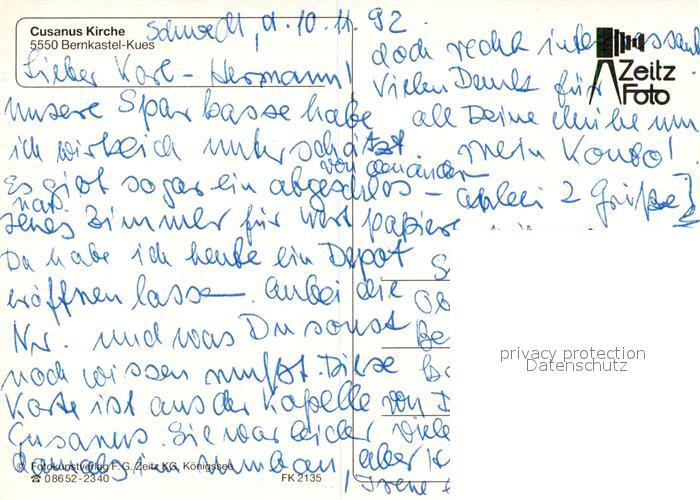 Cusanus Kirche
5550 Bernkastel-Kues
Schwedt, d. 10.11.92.
Lieber Karl-Hermann!
unsere Sparkasse habe
ich wirklich unterschätzt.
Es gibt sogar ein abgeschlos-
senes Zimmer für Wertpapiere
Da habe ich heute ein Depot
eröffnen lassen. Anbei die
Nr. und was Du sonst
noch wissen mußt. Diese
Karte ist aus der Kapelle von
Cusanus. Sie war leider
damals im Umbau, aber
doch recht interessant
Vielen Dank für
all Deine Mühe um
mein Konto!
2 Grüße
von
Irene
Zeitz
Foto
© Fotokunstverlag F. G. Zeitz KG, Königssee
☎ 08652-2340
FK 2135
privacy protection
Datenschutz